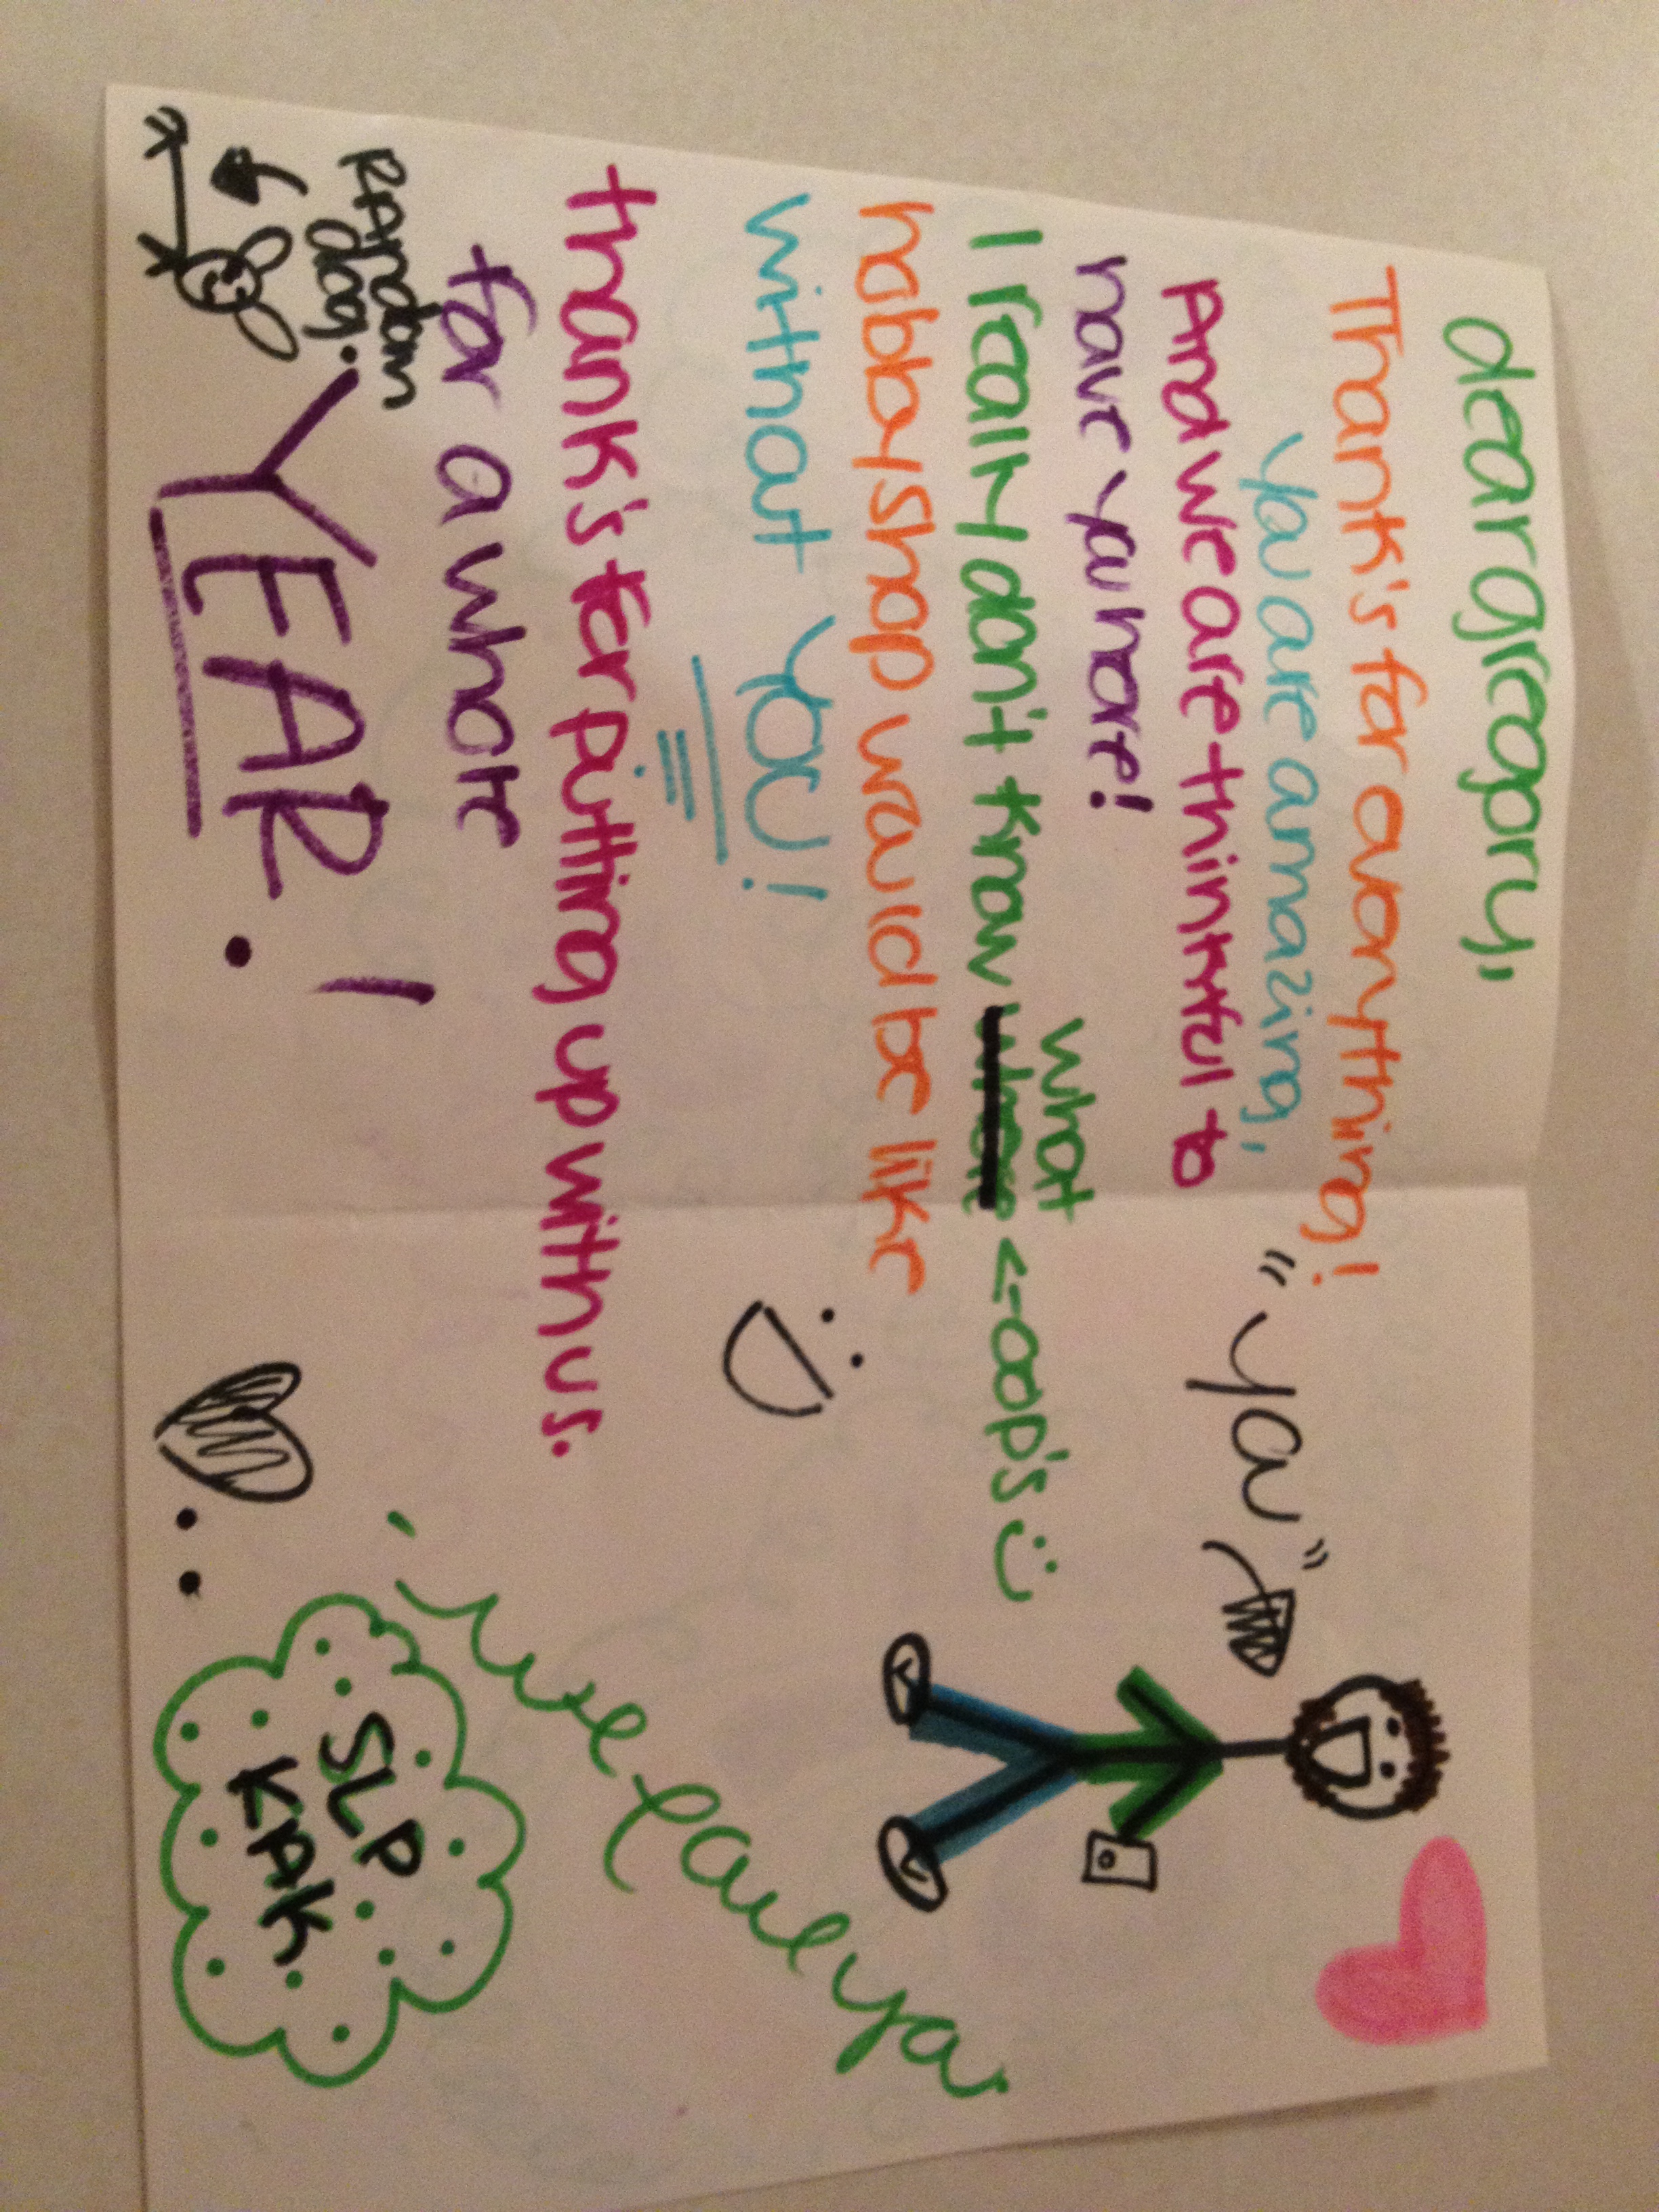 dear gregory,
Thank's for everything!
you are amazing,
And we are thinkful to
have you hore!
I really don't know what
<--oop's :)
hobby shop would be like
without you!
thank's for putting up with us.
for a whole
YEAR!
"you"
Random
dog.
we love you
SLP
KAK